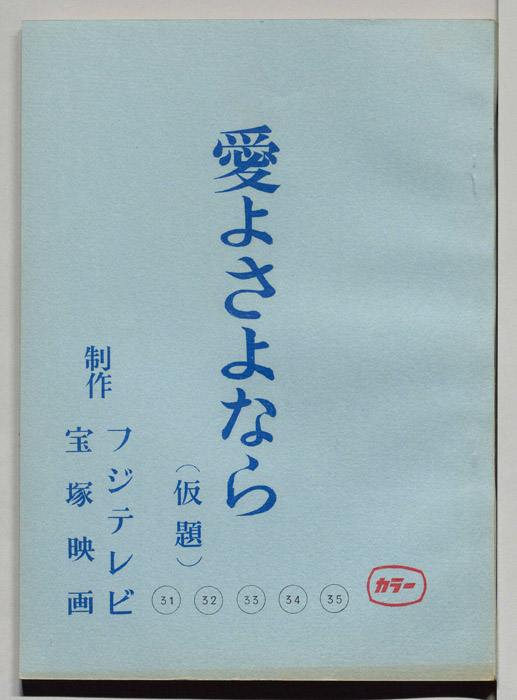 愛よさよなら
（仮題）
制作
フジテレビ
宝塚映画
31 32 33 34 35
カラー